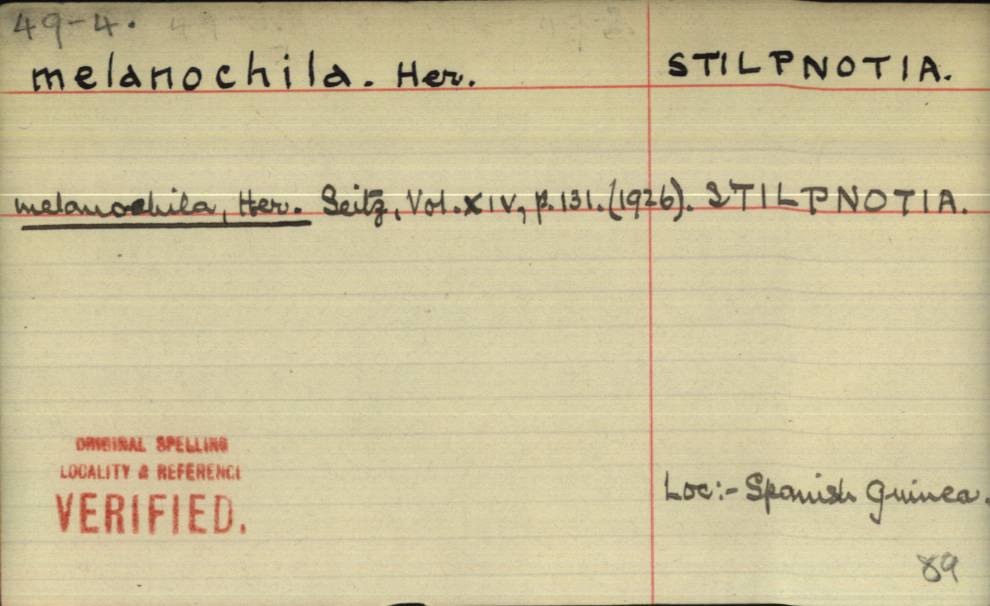 49-4.
melanochila. Her. STILPNOTIA.
melanochila, Her. Seitz, Vol. XIV, p. 131. (1926). STILPNOTIA.
ORIGINAL SPELLING
LOCALITY & REFERENCE
VERIFIED.
Loc:- Spanish Guinea.
89